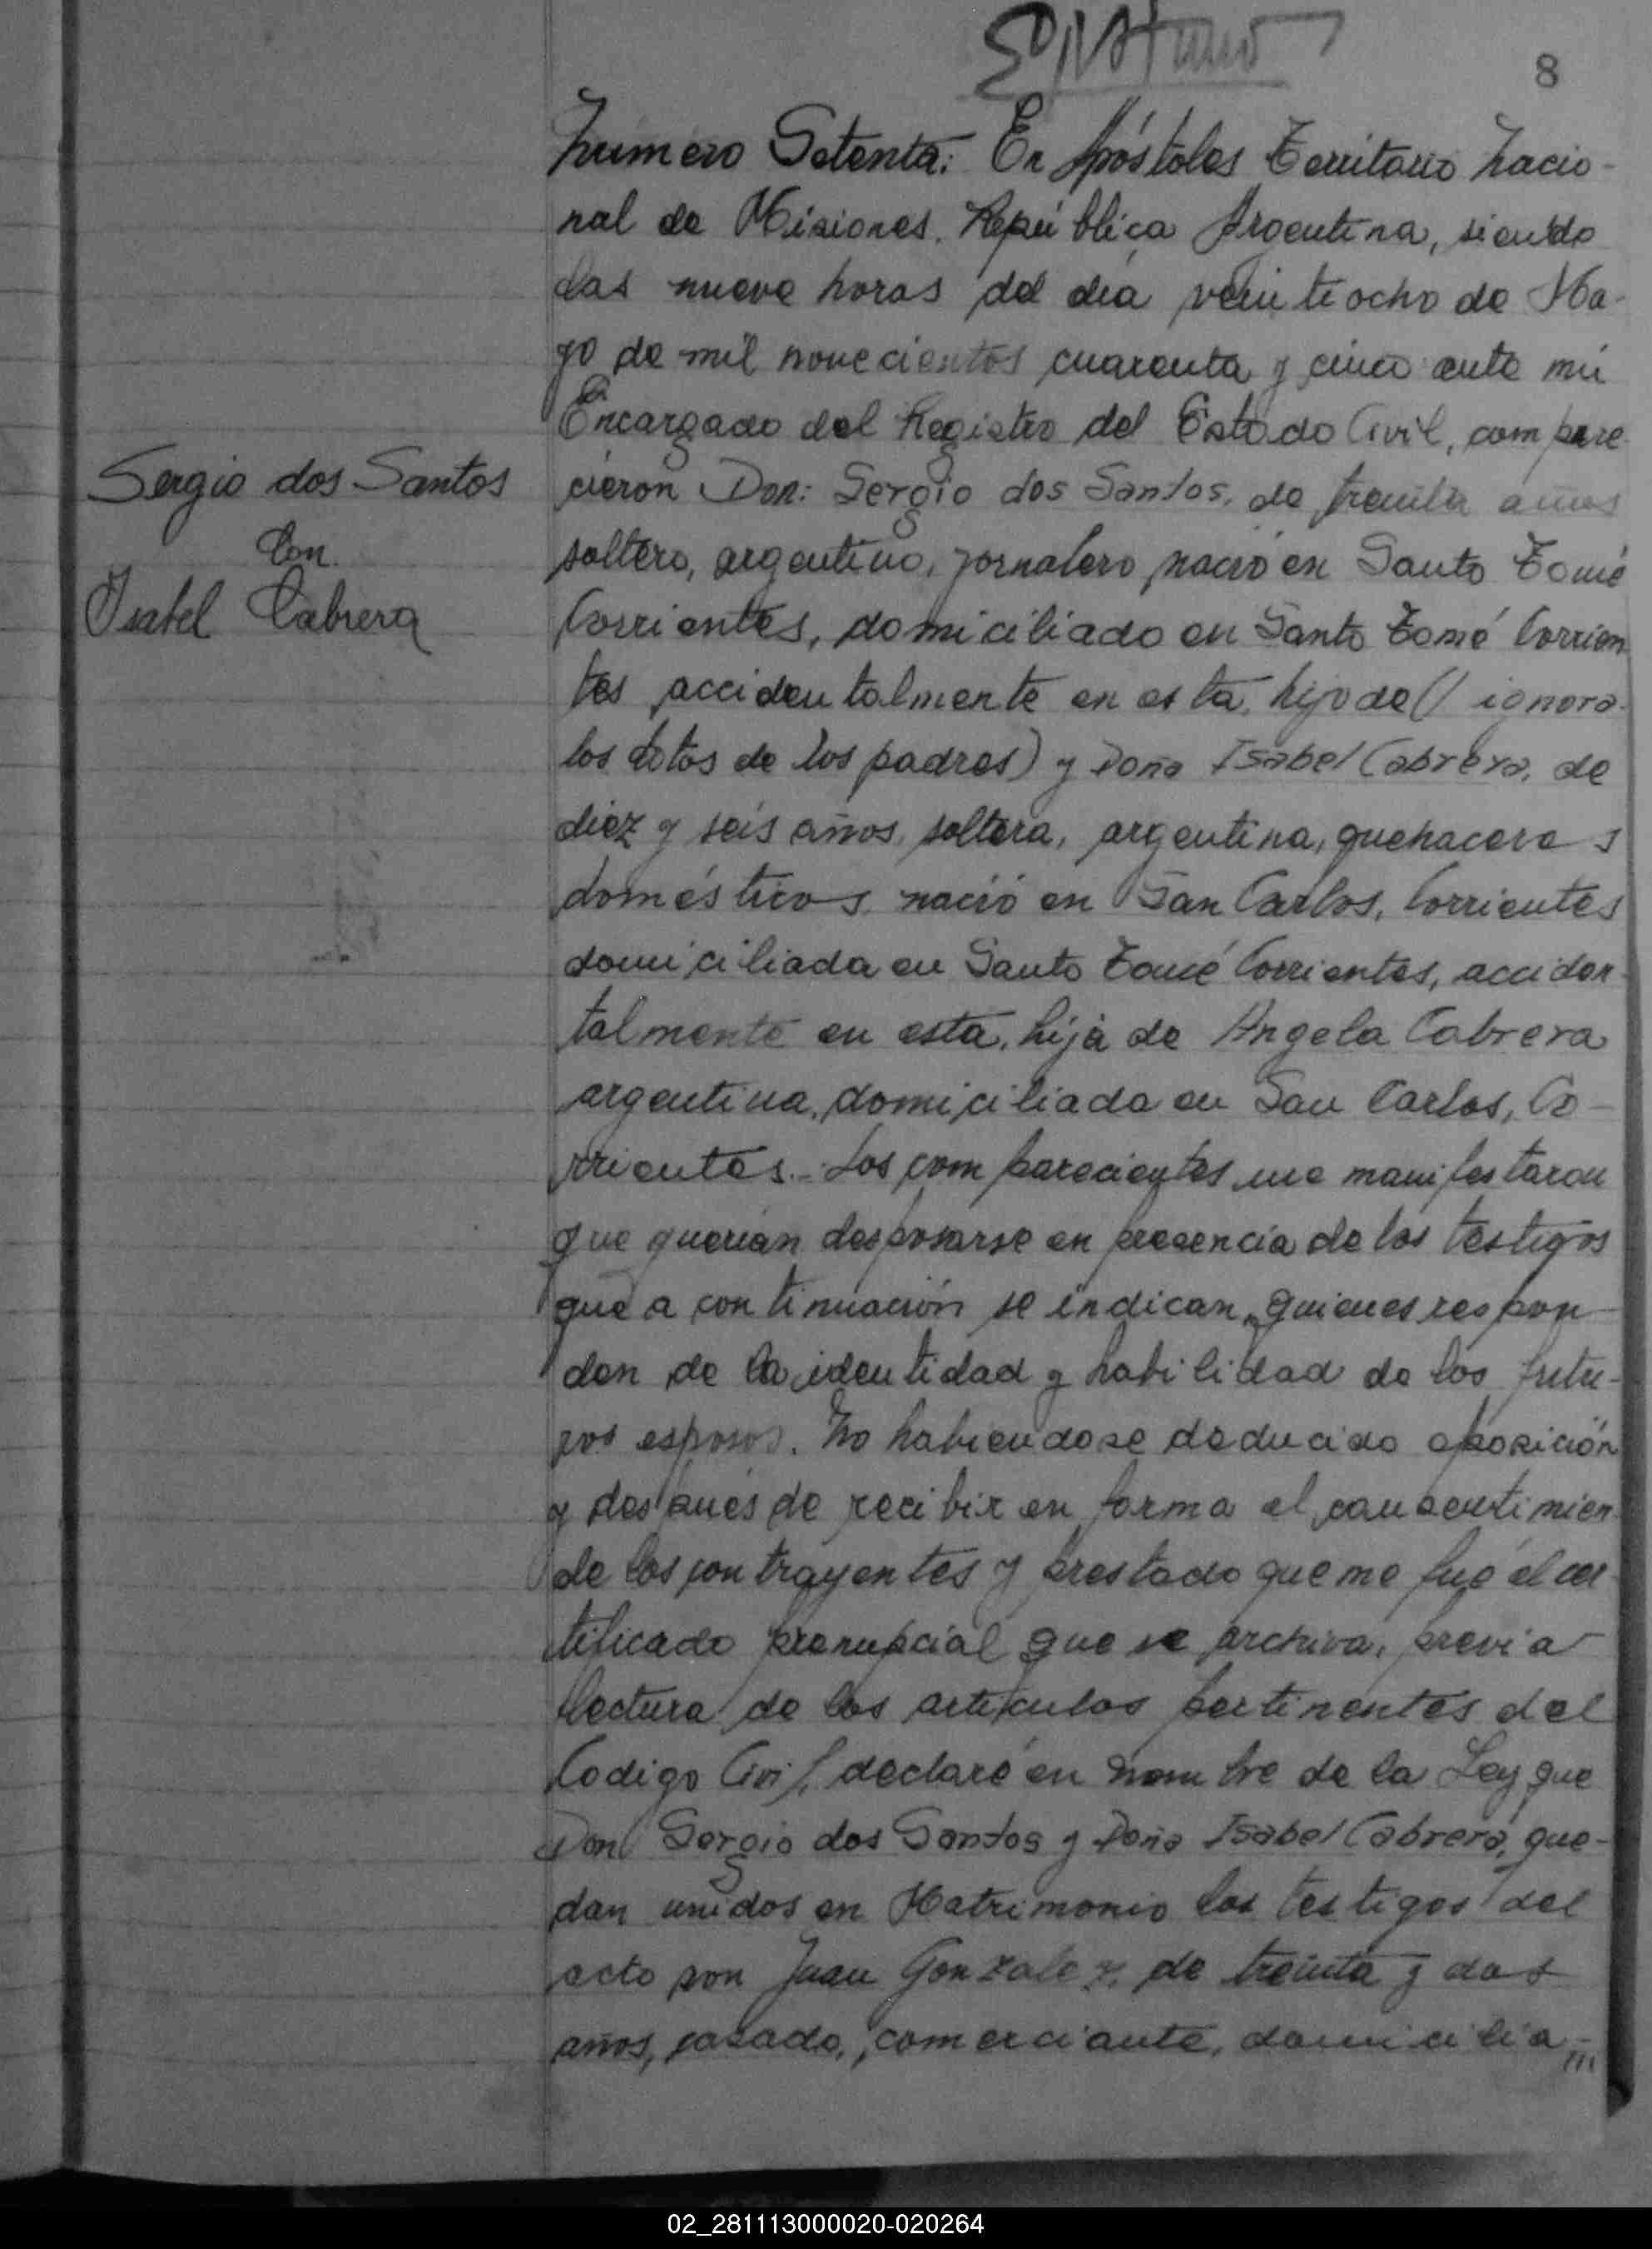 8
Número Setenta: En Apóstoles Territorio Nacio-
nal de Misiones. República Argentina, siendo
las nueve horas del día veintiocho de Ma-
yo de mil novecientos cuarenta y cinco ante mi
Encargado del Registro del Estado Civil, compare-
Sergio dos Santos
Con
Isabel Cabrera
cieron Don: Sergio dos Santos, de treinta años
soltero, argentino, jornalero, nació en Santo Tomé
Corrientes, domiciliado en Santo Tomé Corrien-
tes accidentalmente en esta, hijo de (ignora
los datos de los padres) y Doña Isabel Cabrera, de
diez y seis años, soltera, argentina, quehaceres
domésticos, nació en San Carlos, Corrientes
domiciliada en Santo Tomé Corrientes, acciden-
talmente en esta, hija de Angela Cabrera
argentina, domiciliada en San Carlos, Co-
rrientes.- Los comparecientes me manifestaron
que querían desposarse en presencia de los testigos
que a continuación se indican, quienes respon-
den de la identidad y habilidad de los futu-
ros esposos. No habiendose deducido oposición
y después de recibir en forma el consentimien
de los contrayentes y prestado que me fué el cer-
tificado prenupcial que se archiva, previa
lectura de los artículos pertinentes del
Codigo Civil, declaré en nombre de la Ley que
Don Sergio dos Santos y Doña Isabel Cabrera, que-
dan unidos en Matrimonio los testigos del
acto son Juan Gonzalez, de treinta y dos
años, casado, comerciante, domicilia-
02_281113000020-020264